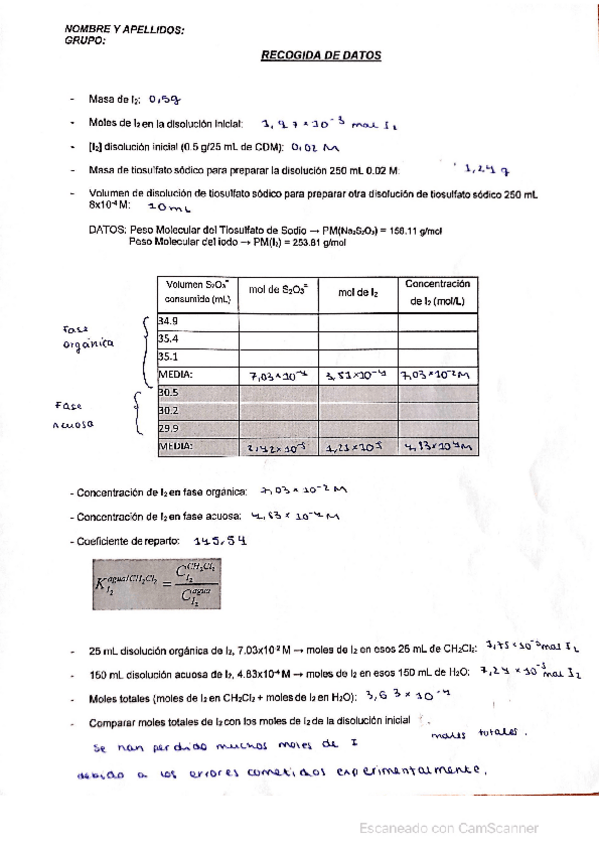 NOMBRE Y APELLIDOS:
GRUPO:
RECOGIDA DE DATOS
- Masa de I₂: 0,5g
- Moles de I₂ en la disolución inicial: 1,97 × 10⁻³ mol I₂
- [I₂] disolución inicial (0.5 g/25 mL de CDM): 0,02 M
- Masa de tiosulfato sódico para preparar la disolución 250 mL 0.02 M: 1,24 g
- Volumen de disolución de tiosulfato sódico para preparar otra disolución de tiosulfato sódico 250 mL
8x10⁻⁴ M: 10 mL
DATOS: Peso Molecular del Tiosulfato de Sodio → PM(Na₂S₂O₃) = 158.11 g/mol
Peso Molecular del iodo → PM(I₂) = 253.81 g/mol
Volumen S₂O₃⁼ consumido (mL) mol de S₂O₃⁼ mol de I₂ Concentración de I₂ (mol/L)
Fase orgánica
34.9
35.4
35.1
MEDIA: 7,03 × 10⁻⁴ 3,51 × 10⁻⁴ 7,03 × 10⁻² M
Fase acuosa
30.5
30.2
29.9
MEDIA: 2,42 × 10⁻⁵ 1,21 × 10⁻⁵ 4,83 × 10⁻⁴ M
- Concentración de I₂ en fase orgánica: 7,03 × 10⁻² M
- Concentración de I₂ en fase acuosa: 4,83 × 10⁻⁴ M
- Coeficiente de reparto: 145,54
K I₂ agua/CH₂Cl₂ = C I₂ CH₂Cl₂ / C I₂ agua
- 25 mL disolución orgánica de I₂, 7.03x10⁻² M → moles de I₂ en esos 25 mL de CH₂Cl₂: mol I₂
- 150 mL disolución acuosa de I₂, 4.83x10⁻⁴ M → moles de I₂ en esos 150 mL de H₂O: 7,24 × 10⁻⁵ mol I₂
- Moles totales (moles de I₂ en CH₂Cl₂ + moles de I₂ en H₂O): 3,63 × 10⁻⁴
moles totales.
- Comparar moles totales de I₂ con los moles de I₂ de la disolución inicial
Se han perdido muchos moles de I
debido a los errores cometidos experimentalmente.
Escaneado con CamScanner